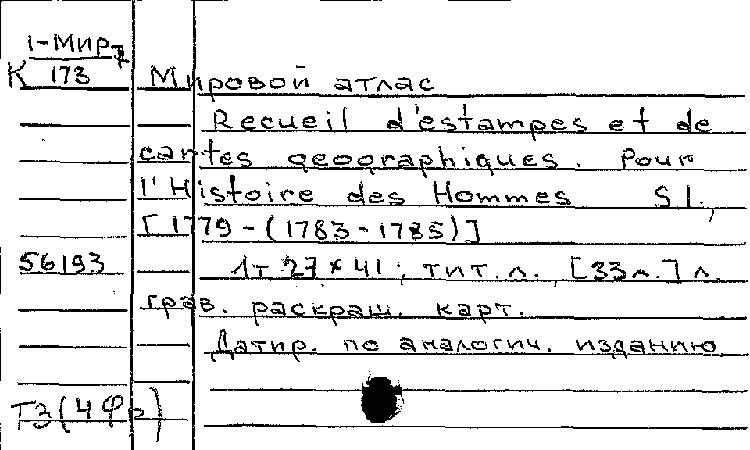 1-Мир
К 173 Мировой атлас
Recueil d'estampes et de
cartes geographiques. Pour
l'Histoire des Hommes S.l.,
[1779-(1783-1785)]
56193 1т 27×41; тит. л. [33л.] л.
грав. раскраш. карт.
Датир. по аналогич. изданию
Т3(4Фр)